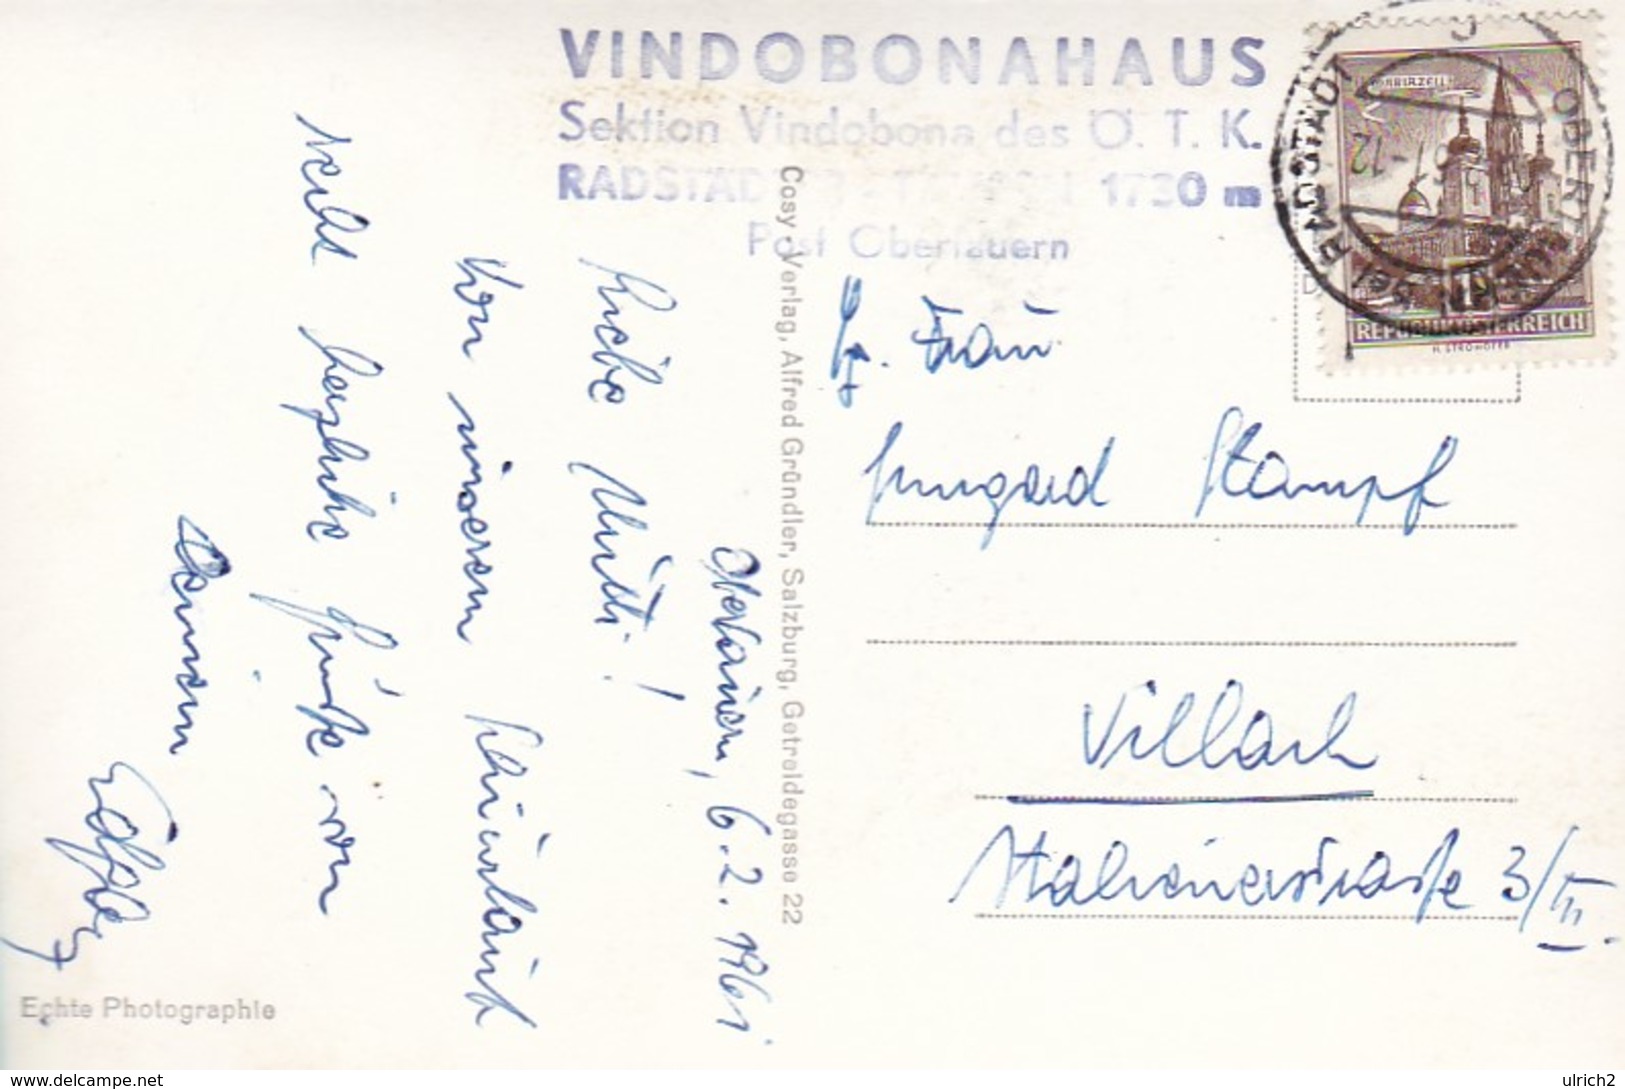 VINDOBONAHAUS
Sektion Vindobona des Ö. T. K.
RADSTÄDTER - TAUERN 1730 m
Post Obertauern
MARIAZELL
REPUBLIK ÖSTERREICH
H. STROHOFER
OBERTAUERN
RADSTADT
Cosy-Verlag, Alfred Gründler, Salzburg, Getreidegasse 22
Obertauern, 6.2.1961
Liebe Mutti!
Von unserem Schiurlaub
recht herzliche Grüße von
Deinem
Frau
Irmgard Stampf
Villach
Italienerstraße 3/III.
Echte Photographie
www.delcampe.net
ulrich2